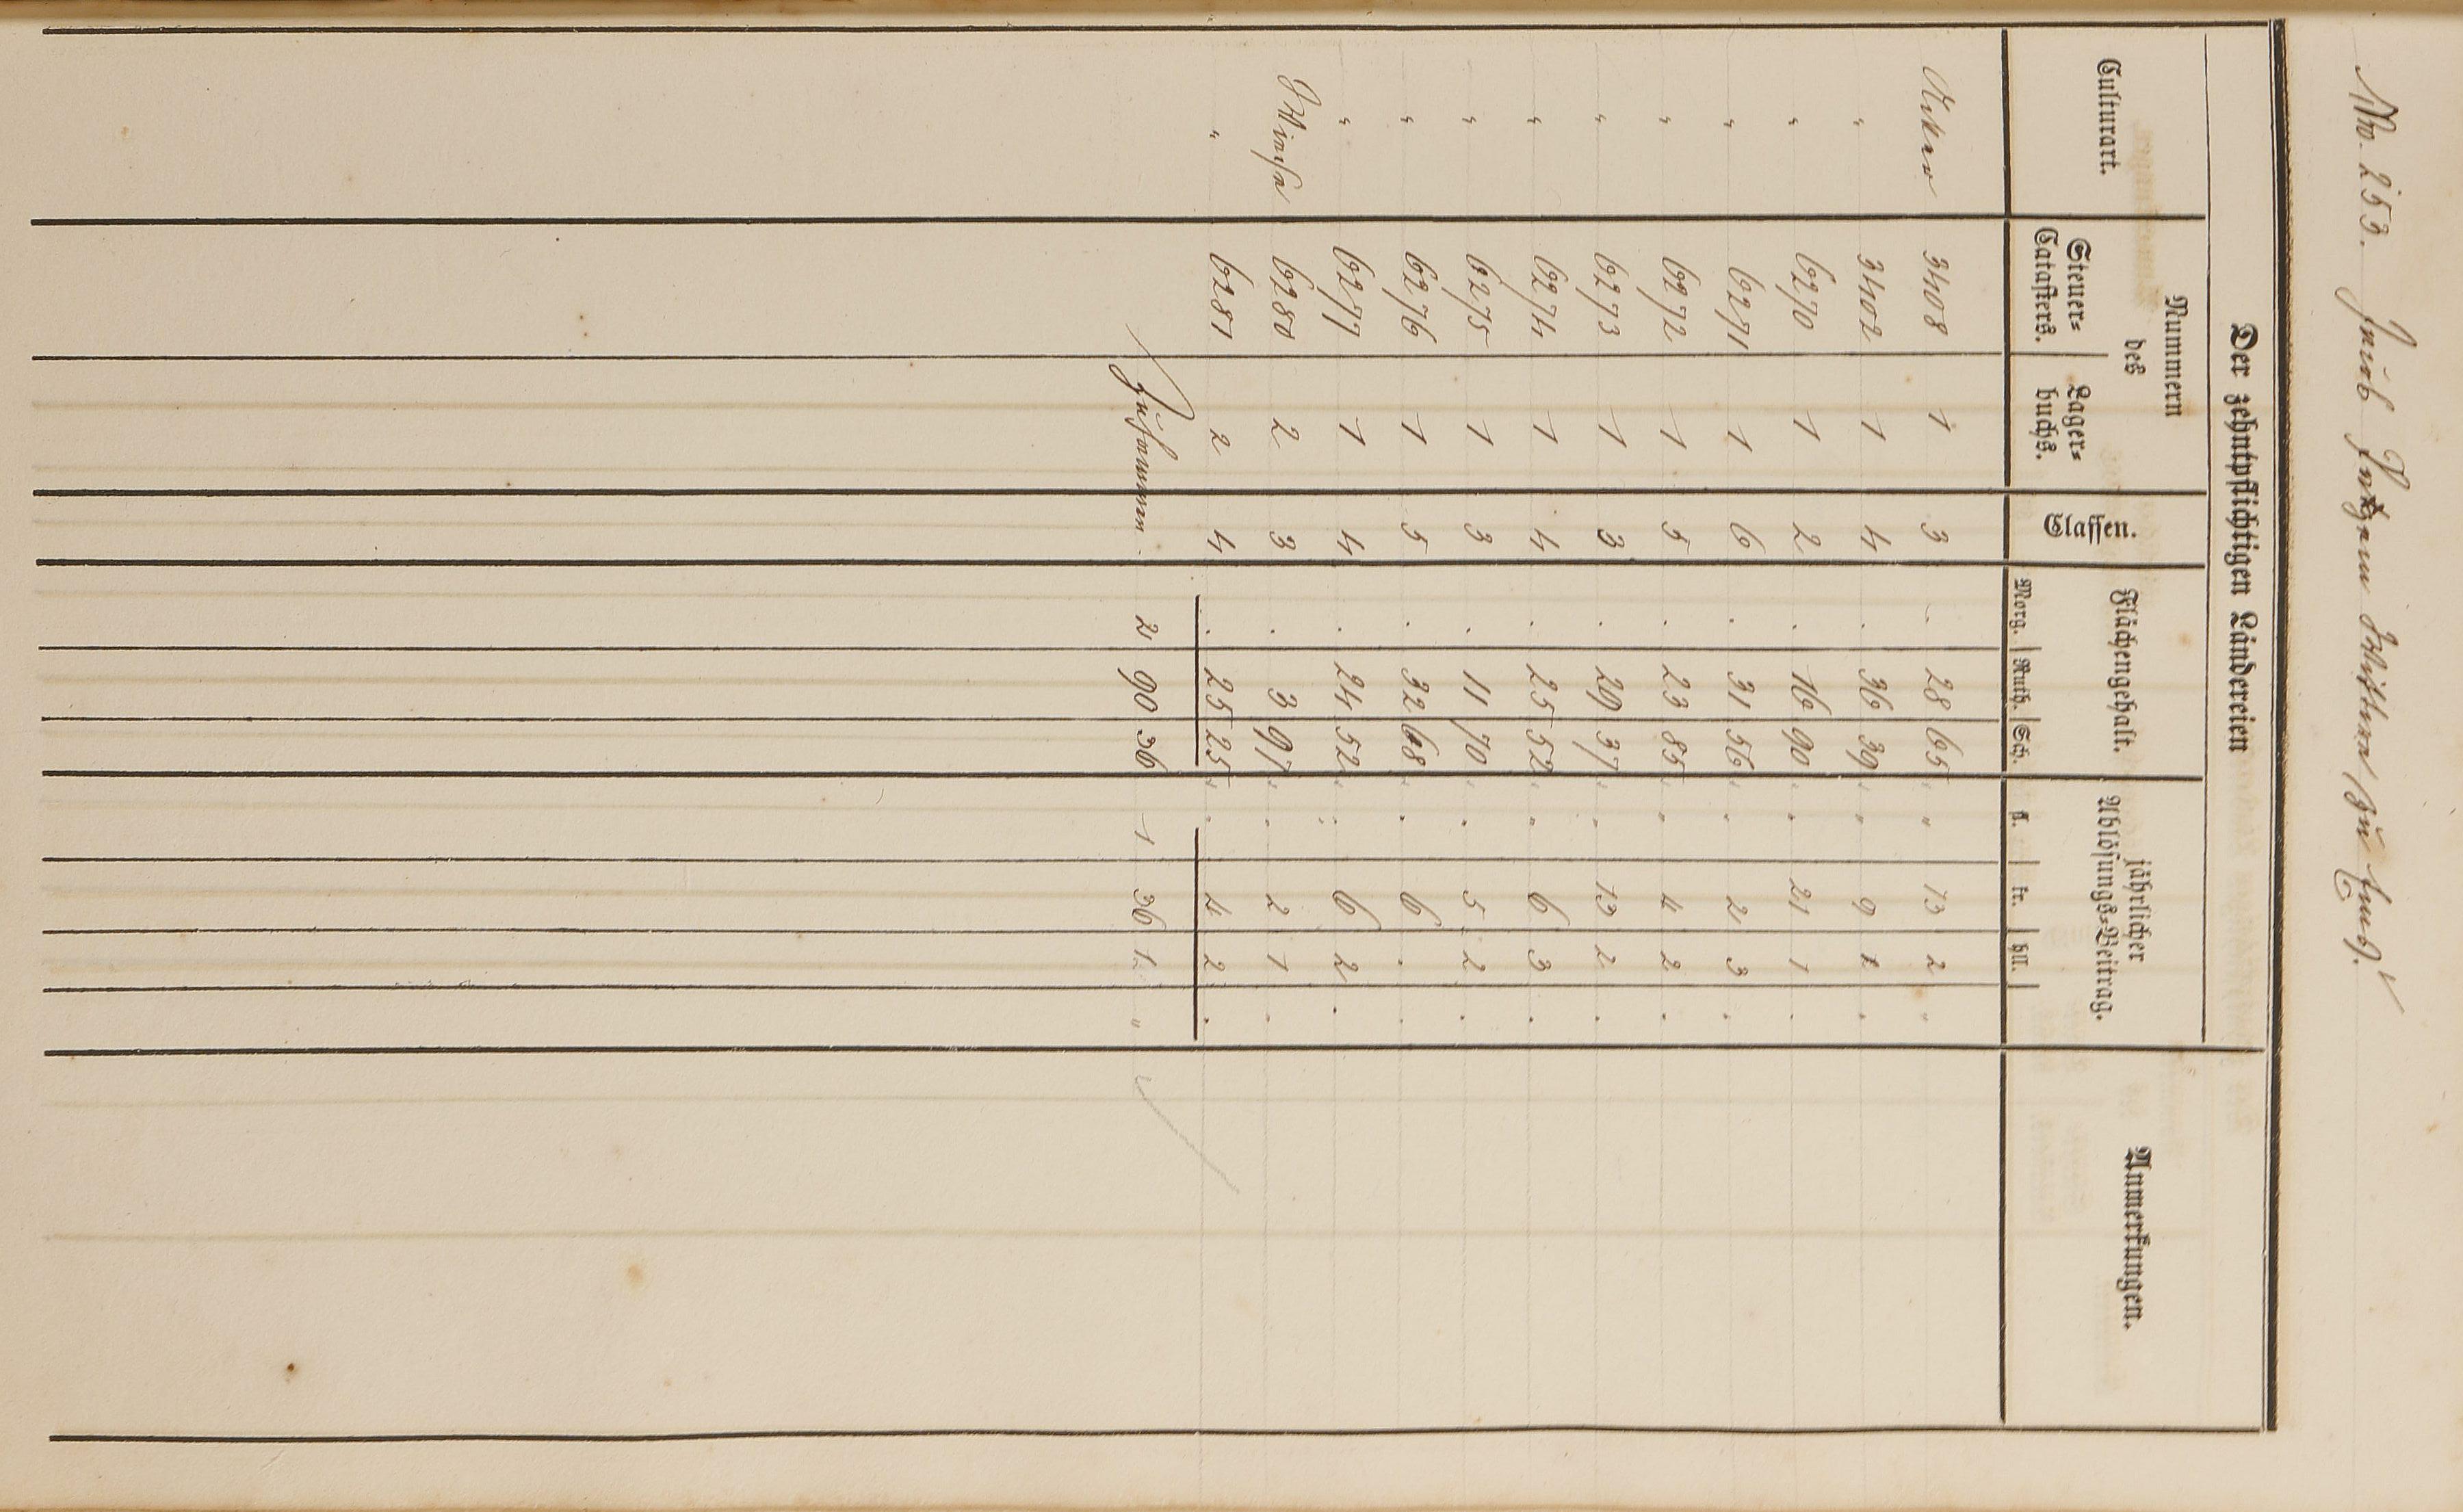 No. 253. Jacob Witwe zu
Der zehntpflichtigen Ländereien
Culturart. Nummern des Classen. Flächengehalt. jährlicher Ablösungs-Beitrag. Anmerkungen.
Steuer-Catasters. Lager-buchs. Morg. Ruth. Sch. fl. kr. hll.
Acker 3408 1 3 . 28 65 " 13 2 "
" 3402 1 4 . 36 39 " 9 1 .
" 6270 1 2 . 16 90 " 21 1 .
" 6271 1 6 . 31 56 " 2 3 .
" 6272 1 5 . 23 85 " 4 2 .
" 6273 1 3 . 29 37 " 13 2 .
" 6274 1 4 . 25 52 " 6 3 .
" 6275 1 3 . 11 70 . 5 2 .
" 6276 1 5 . 32 68 . 6 . .
" 6277 1 4 . 24 52 . 6 2 .
Wiese 6280 2 3 . 3 97 . 2 1 .
" 6281 2 4 . 25 25 . 4 2 .
Zusammen 2 90 36 1 36 1 "